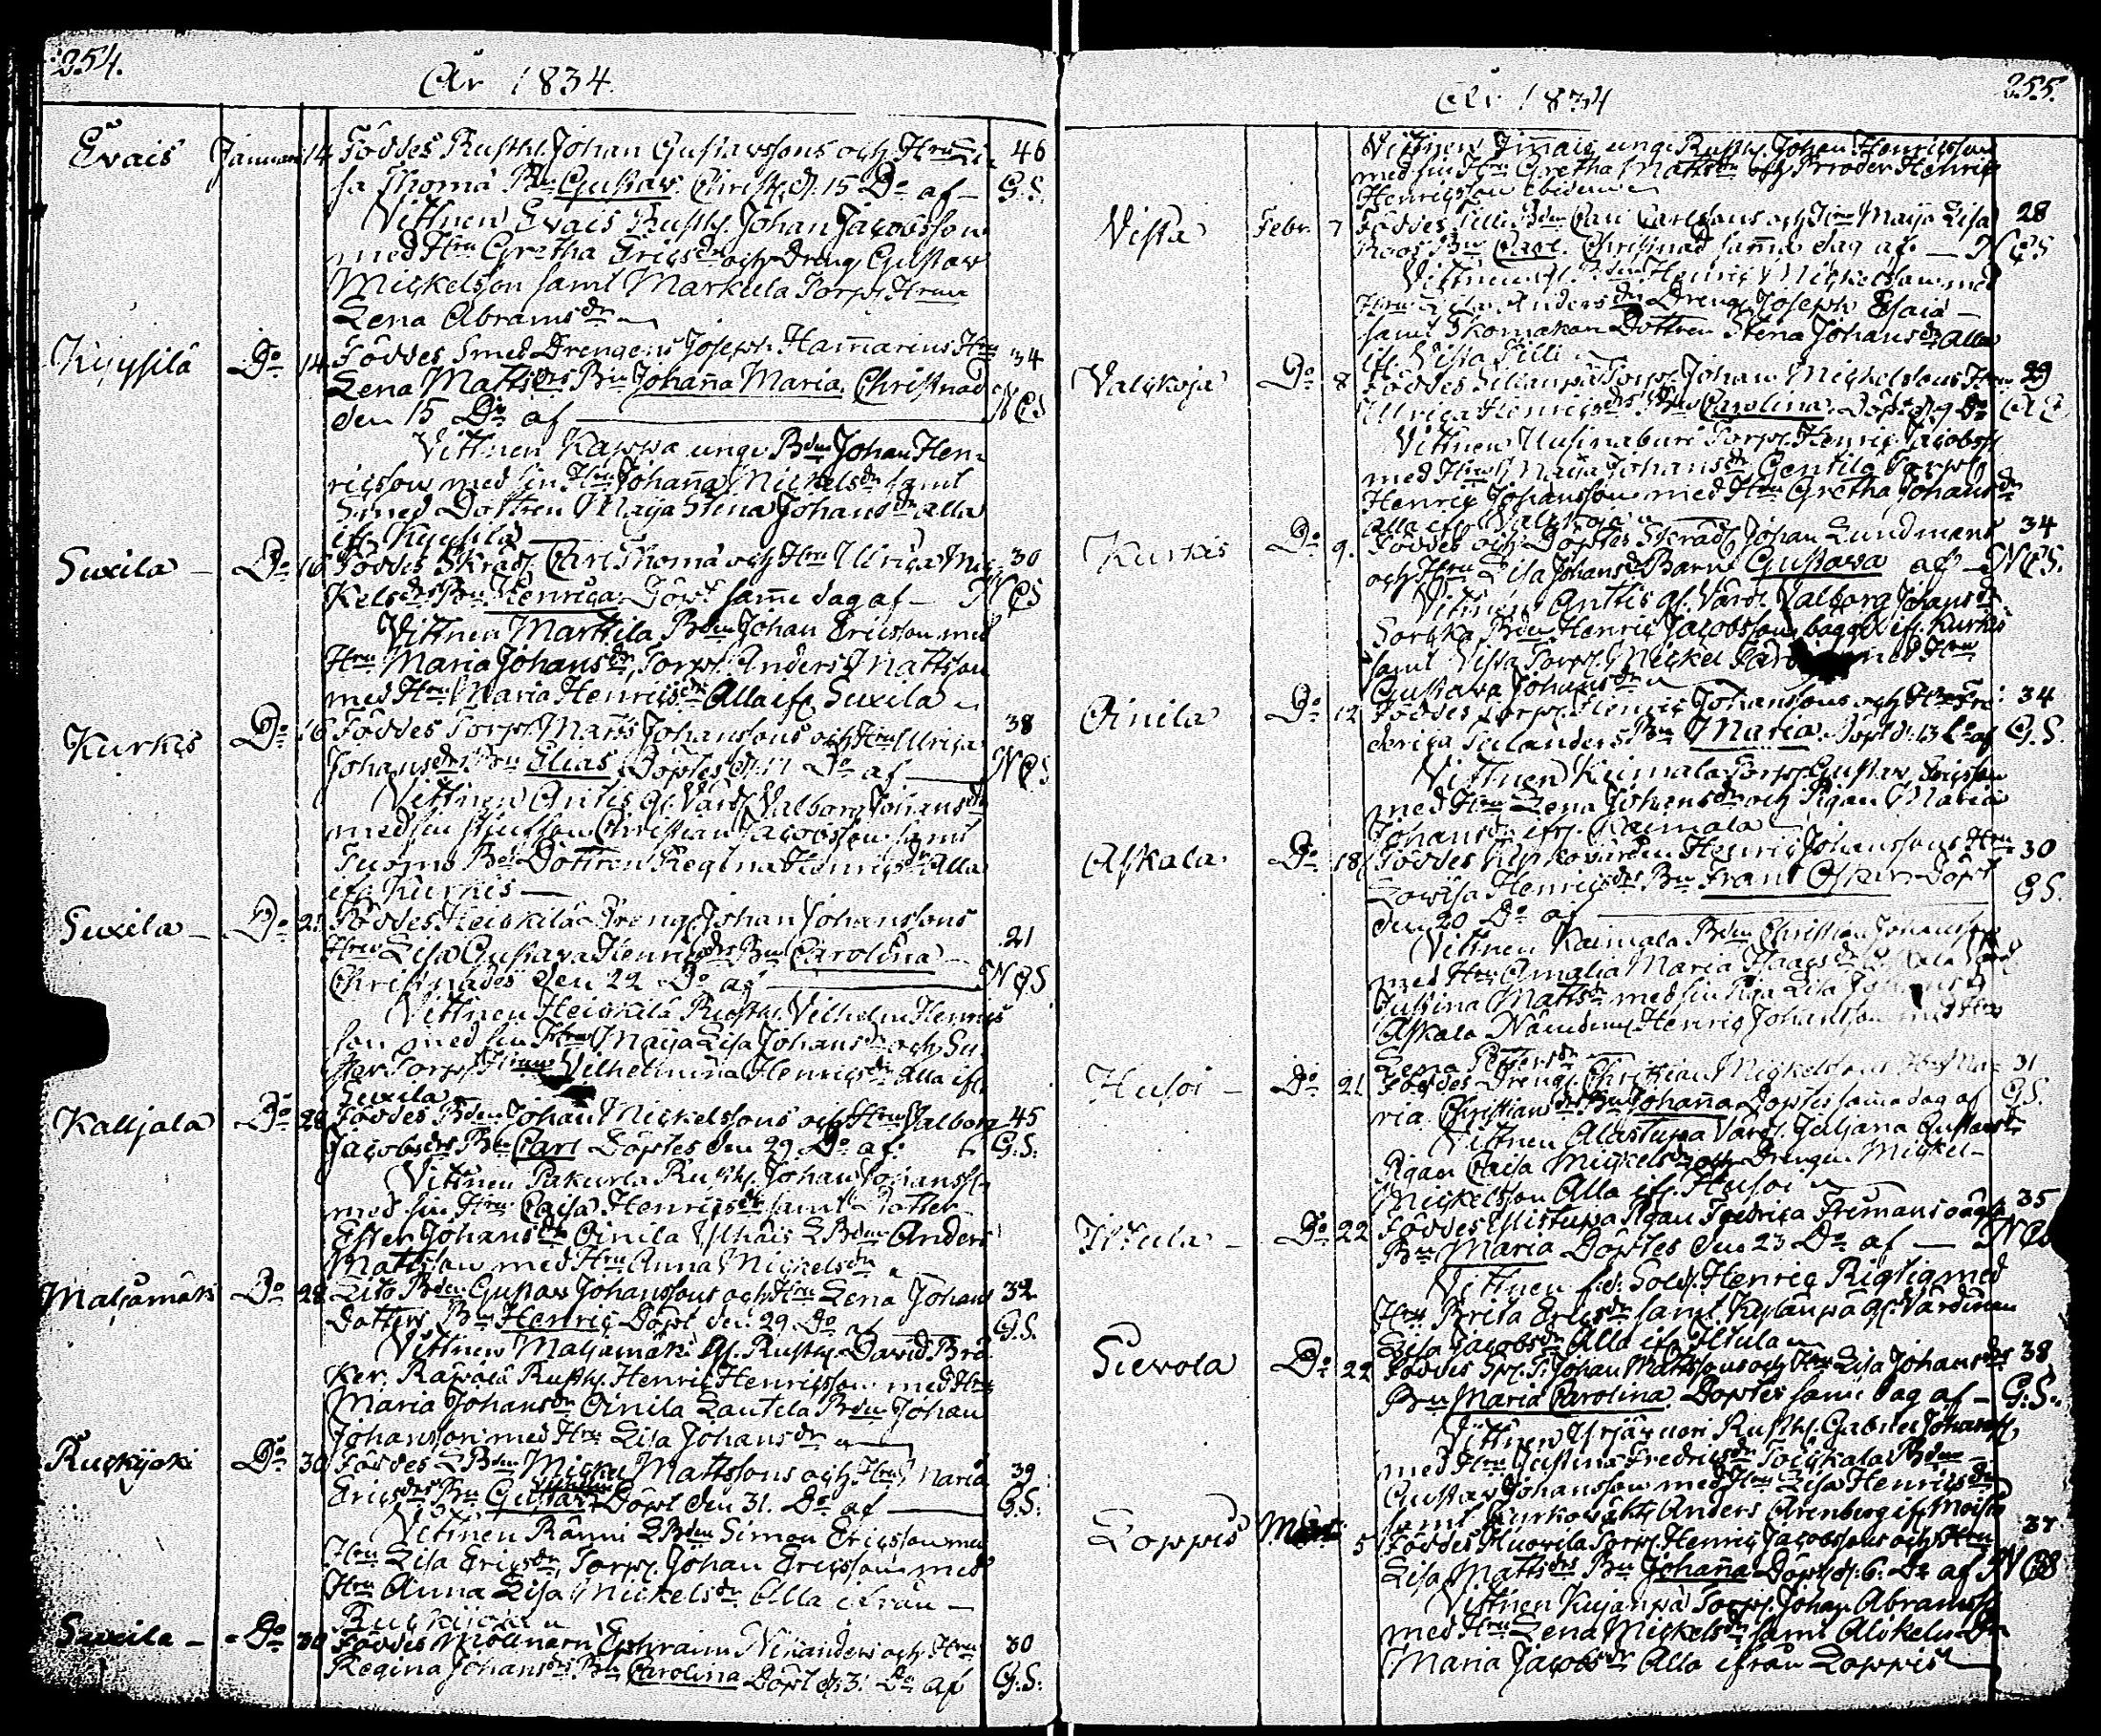 254.
År 1834.
Evais Januari 14 Föddes Rusth. Johan Gustavssons och Hru Li= 46
sa Thomä Bn Gustav. Christn. d. 15 Do af — G.S.
Vittnen Evais Rusth. Johan Jacobsson
med Hru Gretha Ericsdr och Dreng Gustav
Mickelsson samt Markula Torp. Hrun
Lena Abramsdr
Kyysilä Do 14 Föddes Smed Drengens Joseph Hamarins Hru 34
Lena Mattsdrs Bn Johanna Maria. Christnad
den 15 Do af — NCS
Vittnen Kappa unge Bden Johan Hen=
ricsson med sin Hru Johanna Mickelsdr samt
Smed Dottren Maja Stina Johansdr alla
ifr. Kyysilä
Suxila — Do 16 Föddes Skräd. Carl Thomä och Hru Ulrica Mic= 30
kelsdrs Bn Henrica. Döpt samme dag af — NCS
Vittnen Marttila Bden Johan Ericsson med
Hru Maria Johansdr, Torp. Anders Mattsson
med Hru Maria Henricsdr Alla ifr. Suxila
Kurkis Do 16 Föddes Torp. Matts Johanssons och Hru Ulrica 38
Johansdrs Bn Elias Döptes d. 17 Do af — NCS
Vittnen Anttis gl. Värd. Valborg Johansdr
med sin Christian Jacobsson samt
Bds Dottren Regina Henricsdr Alla
ifr. Kurkis —
Suxila — Do 21 Föddes Heickilä Dreng Johan Johanssons 21
Hru Lisa Gustava Henricsdrs Bn Carolina —
Christnades den 22 Do af — NCS
Vittnen Heickilä Rusth. Vilhelm Henrics
son med sin Hru Maja Lisa Johansdr och Sy=
ster Torp. Hrun Vilhelmina Henricsdr alla ifr.
Suxila
Kalljala Do 28 Föddes Bden Johan Mickelssons och Hru Valborg 45
Jacobsdrs Bn Carl Döptes den 29 Do af G.S.
Vittnen Pakurla Rusth. Johan Johansson
med sin Hru Caisa Henricsdr samt Dotter
Ester Johansdr Oinila Ylhäis Bden Anders
Mattsson med Hru Anna Mickelsdr
Maljamäki Do 28 Bden Gustav Johanssons och Hru Lena Johans 32
Dotters Bn Henric Döpt den 29 Do af G.S.
Vittnen Maljamäki gl. Rusth. David Brä
ker, Rusth. Henric Henricsson med Hru
Maria Johansdr Oinila Lautela Bden Johan
Johansson med Hru Lisa Johansdr
Ruckijoki Do 30 Föddes Bden Mickel Mattssons och Hru Maria 39
Ericsdrs Bn Gustav Döpt den 31. Do af — G.S.
Vittnen Ränni Bden Simon Ericsson med
Hru Lisa Ericsdr, Torp. Johan Ericsson med
Hru Anna Lisa Mickelsdr Alla ifrån —
Ruckijoki
Suxila — Do 30 Föddes Möllnarn Ephraim Nikanders och Hru 30
Regina Johansdrs Bn Carolina Döpt d. 31 Do af G.S.
255.
År 1834
Vittnen unge Rusth. Johan Henricsson
med sin Hru Gretha Mattsdr och Broder Henric
Henricsson
Vista Febr. 7 Föddes Tilli Bden Carl Carlssons och Hru Maja Lisa 28
Roos Bn Carl. Christnad samma dag af — NCS
Vittnen gl. Bden Henric Mickelsson med
Hru Lisa Andersdr Dreng Joseph Esaia —
samt Skomakar Dottren Stena Johansdr Alla
ifr. Vista Tilli
Valckoja Do 8 Föddes Torp. Johan Mickelssons Hru 29
Ulrica Henricsdrs Bn Carolina. Döpt d. 9 Do
Vittnen Uusinaburi Torp. Henric Jacobss.
med Hru Maija Johansdr Gentilä Torp.
Henric Johansson med Hru Gretha Johansdr
alla ifr. Valckoja
Kurkis Do 9. Föddes och Döptes Skräd. Johan Lundmans 34
och Hru Lisa Johansdrs Barn Gustava af — NCS.
Vittnen Anttis gl. Värd. Valborg Johansdr
Bden Henric Jacobsson bägge ifr. Kurkis
samt Vista Torp. Mickel med Hru
Gustava Johansdr
Oinila Do 12 Föddes Torp. Henric Johanssons och Hru Fre= 34
derica Selanders Bn Maria. Döpt d. 13 Do af G.S.
Vittnen Keimala Torp. Gustav Ericsson
med Hru Lena Johansdr och Pigan Maria
Johansdr ifr. Keimala
Askala Do 18 Föddes Kyrkovärden Henric Johanssons Hru 30
Lovisa Henricsdrs Bn Frans Oskar Döpt
den 20 Do af — G.S.
Vittnen Keimala Bden Christian Johansson
med Hru Amalia Maria
Justina Mattsdr med sin Piga Lisa
Askala Nämdem. Henric Johansson med Hru
Lena Pettersdr
Husoi — Do 21 Föddes Dreng. Christian Mickelssons Hru Ma= 31
ria Christiansdrs Bn Johanna Döptes samma dag af G.S.
Vittnen Alastupa Värd. Juljana Gustavsdr
Pigan Caisa Mickelsdr och Drengen Mickel —
Mickelsson Alla ifr. Husoi
Do 22 Föddes Ylistupa Pigan Fredrica Frimans oägta 35
Bn Maria Döptes den 23 Do af — NCS
Vittnen f.d. Sold. Henric Rigtig med
Hru Brita Ericsdr samt Kylänpä gl. Värdinnan
Lisa Jacobsdr Alla ifr.
Sievola Do 22 Föddes Johan Mattssons och Hru Lisa Johansdrs 38
Bn Maria Carolina Döptes samme dag af — G.S.
Vittnen Yrjänuori Rusth. Gabriel Johanss.
med Hru Justina Fredricsdr Bden —
Gustav Johansson med Hru Lisa Henricsdr
samt Kyrkovakt. Anders Arenberg ifr. Moisio
Loppis Mart. 5 Föddes Kuovila Torp. Henric Jacobssons och Hru 37
Lisa Mattsdrs Bn Johanna Döpt d. 6. Do af NCS
Vittnen Kujanpä Torp. Johan Abramss.
med Hru Lena Mickelsdr samt
Maria Jacobsdr Alla ifrån Loppis